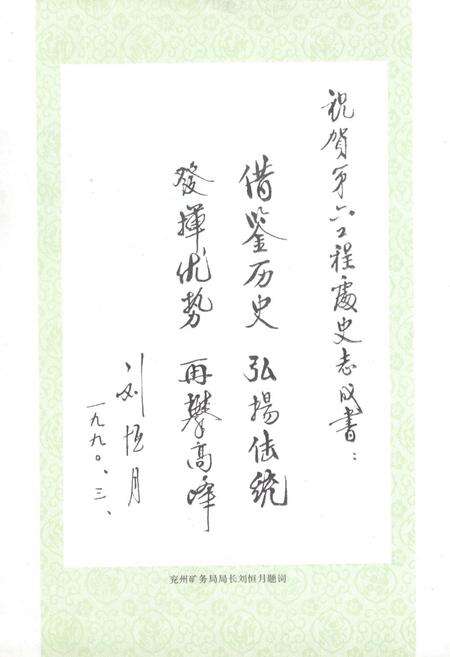 祝贺第六工程处史志成书：
借鉴历史 弘揚传统
發揮优势 再攀高峰
刘恒月
一九九〇、三、
兖州矿务局局长刘恒月题词